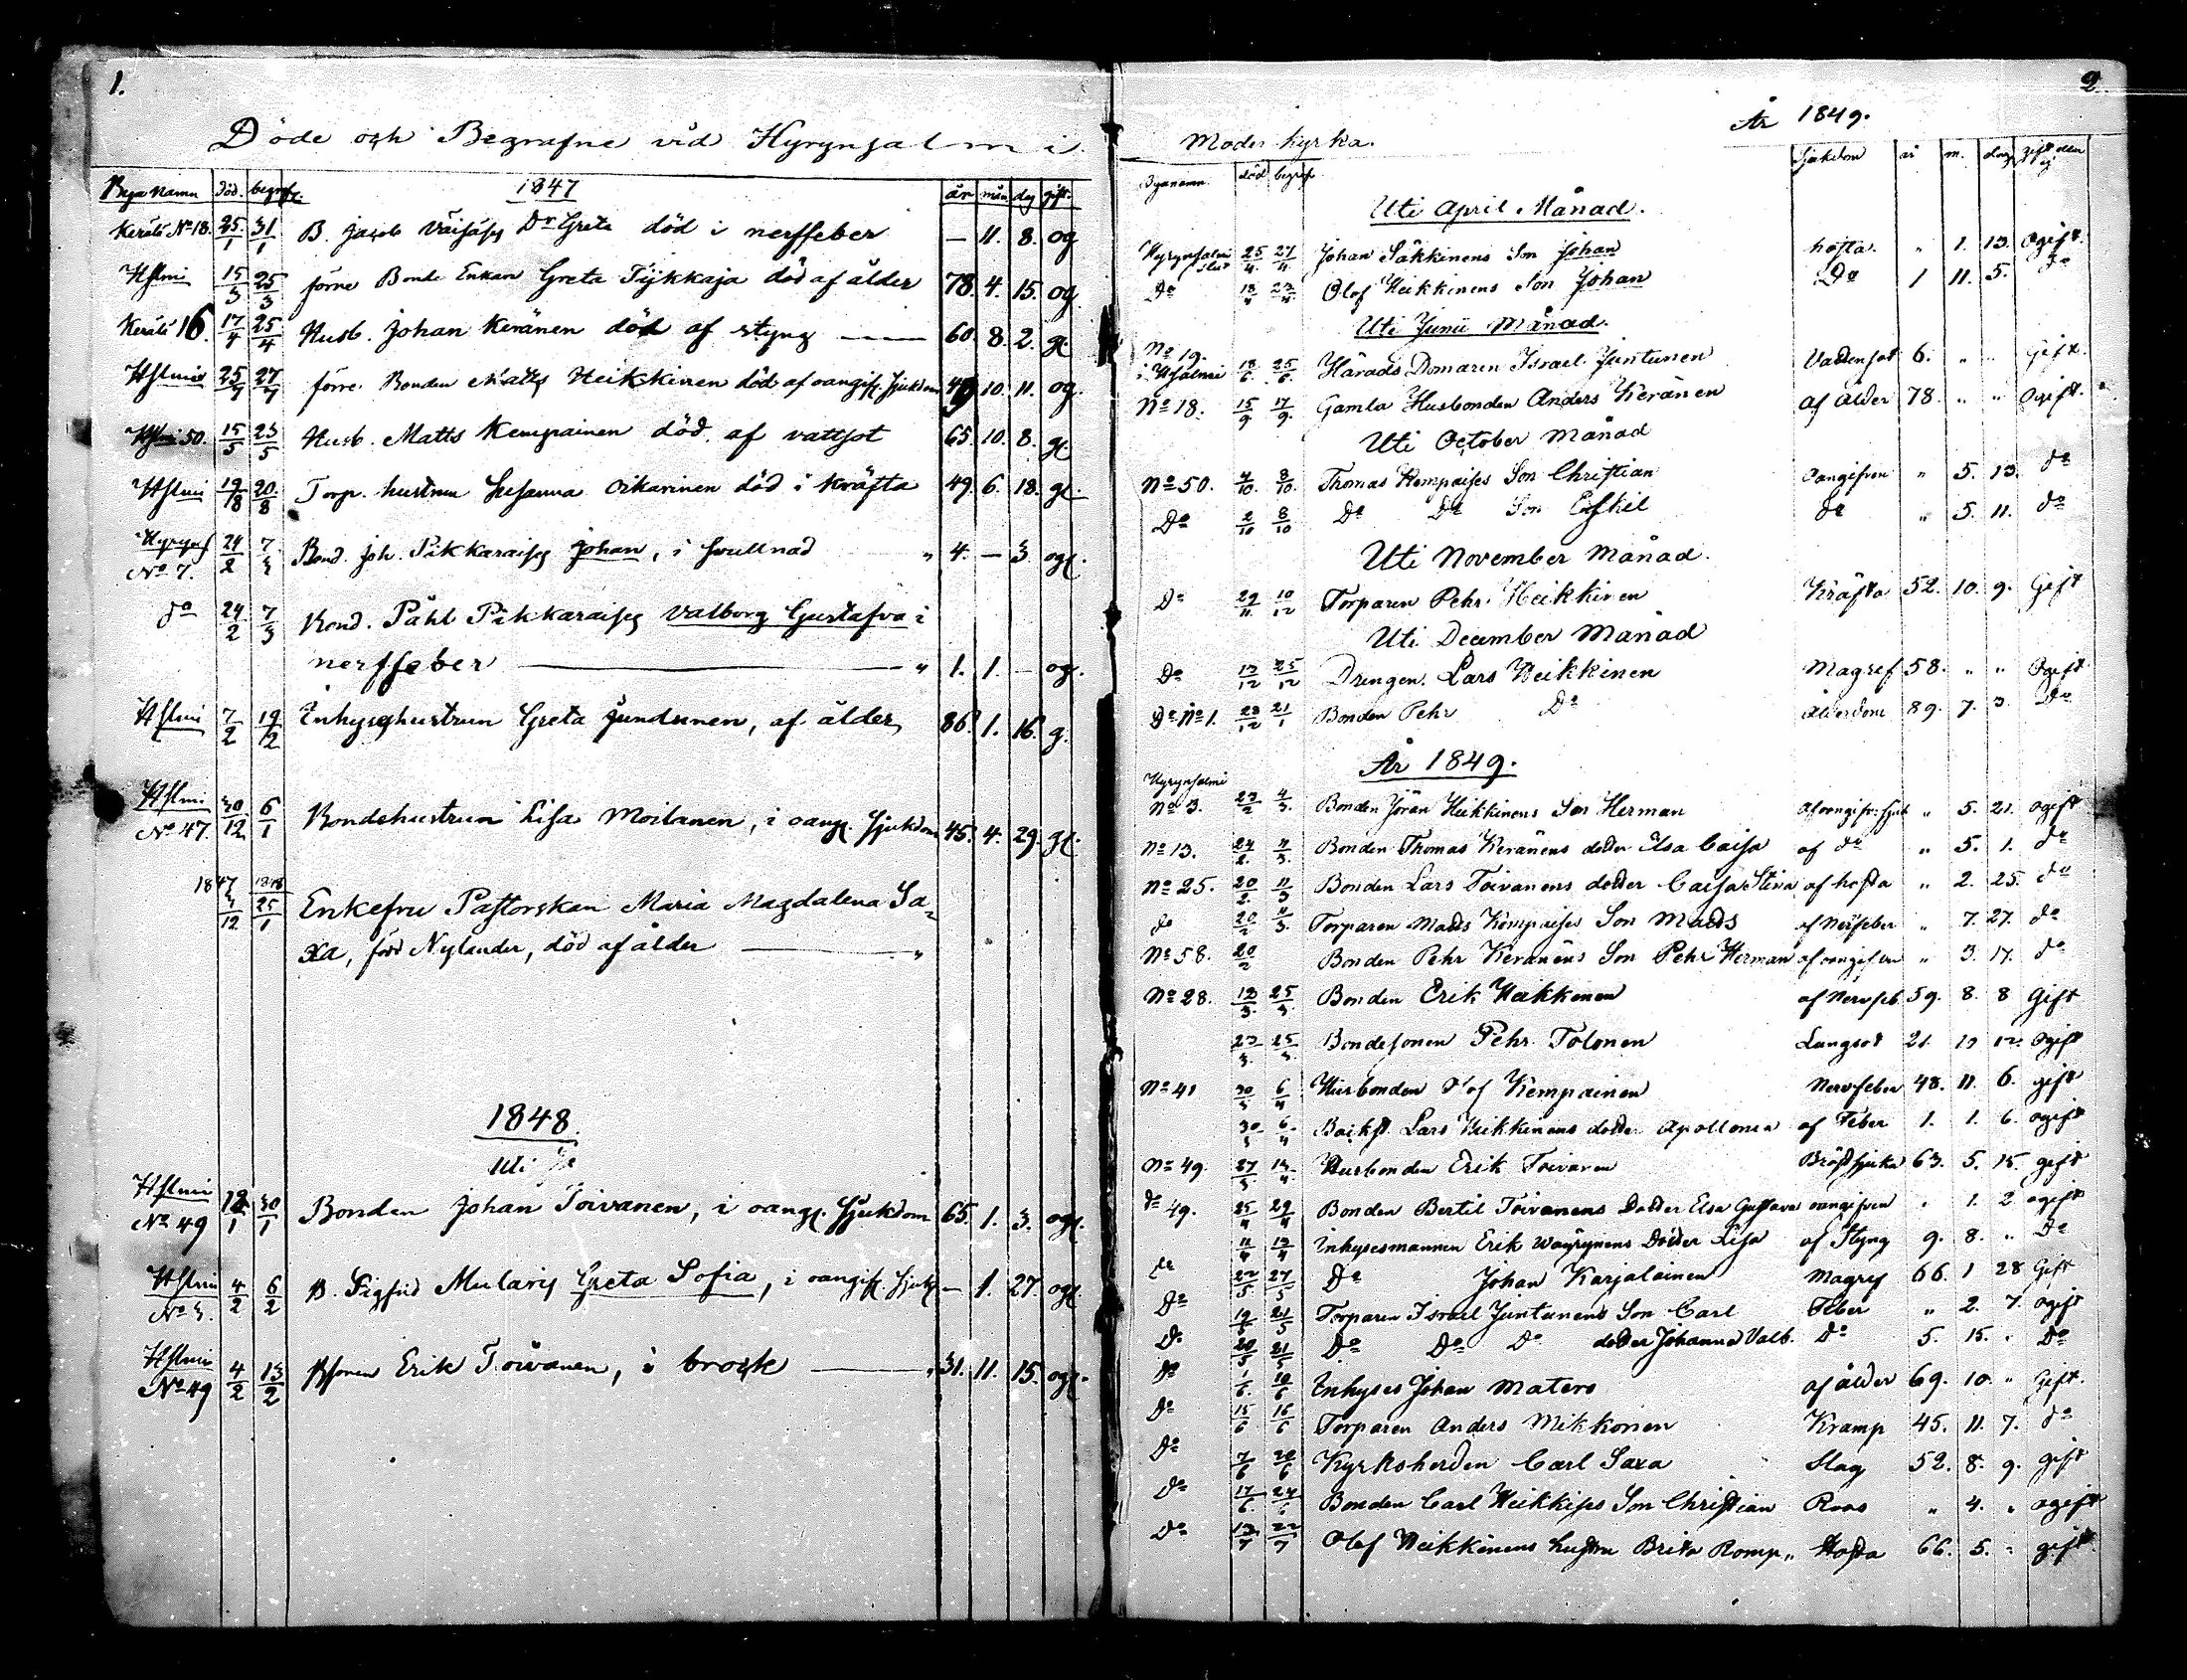 1.
Döde och Begrafne vid Hyrynsalmi
Bya Namn död. begrafn. 1847 år mån dag gift.
Kerälä No 18. 25/1 31/1 B. Jacob Väisäses Dr Greta död i nerffeber — 11. 8. og
Hslmi 15/3 25/3 förre Bonde Enkan Greta Tykkaja död af ålder 78. 4. 15. og
Kerälä 16. 17/4 25/4 Husb. Johan Keränen död af styng — 60. 8. 2. gt.
Hslmi 25/4 27/4 förre Bonden Matts Heikkinen död af oangif. sjukdom 49 10. 11. og.
Hslmi 50. 15/5 23/5 Husb. Matts Kempainen död af vattsot 65. 10. 8. gt.
Hslmi 19/8 20/8 Torp. hustrun Susanna Oikarinen död i kräfta 49. 6. 18. gt.
Hyryns No 7. 24/2 7/3 Bond. Joh. Pikkaraises Johan, i svullnad " 4. — 3. ogt.
do 24/2 7/3 Bond. Påhl Pikkaraises Valborg Gustafva i
nerffeber — " 1. 1. — og.
Hslmi 7/2 19/12 Inhyseshustrun Greta Jundunen, af ålder, 86. 1. 16. g.
Hslmi No 47. 30/12 6/1 Bondehustrun Lisa Moilanen, i oangf. sjukdom 45. 4. 29. gt.
1847 3/12 1848 25/1 Enkefru Pastorskan Maria Magdalena Sa-
xa, född Nylander, död af ålder — "
1848.
Uti
Hslmi No 49 12/1 30/1 Bonden Johan Toivanen, i oangf. sjukdom 65. 1. 3. ogt.
Hslmi No 3. 4/2 6/2 B. Sigfrid Mularis Greta Sofia, i oangif. sjukd — 1. 27. ogt.
Hslmi No 49 4/2 13/2 Bsonen Erik Toivanen, i brock — 31. 11. 15. ogt.
2.
Moder kyrka. År 1849.
Byanamn död begrafn Sjukdom år m. dag gift eller ej
Uti April Månad.
Hyrynsalmi 25/4. 27/4. Johan Säkkinens Son Johan hosta. " 1. 13. Ogift.
Do 18/4 23/4 Olof Heikkinens Son Johan Do 1 11. 5. do
Uti Junii Månad.
No 19. i Hsalmi 18/6. 25/6. Härads Domaren Israel Juntunen Vattensot 6. " " Gift.
No 18. 15/9 17/9. Gamla Husbonden Anders Keränen af ålder 78. " " Ogift.
Uti October Månad
No 50. 4/10. 8/10. Thomas Kempaises Son Christian Oangifven " 5. 13. do
Do 2/10 8/10 Do Do Son Eskil do " 5. 11. do
Uti November Månad.
Do 29/11. 10/12 Torparen Pehr Heikkinen Kräfta 52. 10. 9. Gift
Uti December Månad
Do 13/12 25/12 Drengen Lars Heikkinen Magref 58. " " Ogift
Do No 1. 23/12 21/1 Bonden Pehr Do Ålderdom 89. 7. 3. Do
År 1849.
Hyrynsalmi
No 3. 23/2 4/3. Bonden Jöran Heikkinens Son Herman af oangifv. sjuk " 5. 21. ogift
No 13. 24/2. 4/3. Bonden Thomas Keränens dotter Elsa Caisa af do " 5. 1. do
No 25. 20/2. 11/3 Bonden Lars Toivanens dotter Caisa Stina af hosta " 2. 25. do
do 20/2 11/3. Torparen Matts Kempaises Son Matts af Nerfeber " 7. 27. do
No 58. 20/2 Bonden Pehr Keränens Son Pehr Herman af oangifven " 3. 17. do
No 28. 13/3. 25/3. Bonden Erik Heikkinen af Nervfeb. 59. 8. 8 Gift
23/3. 25/3 Bondesonen Pehr Tolonen Lungsot 21. 10 12. Ogift
No 41 30/3 6/4 Husbonden Olof Kempainen Nervfeber 48. 11. 6. gift
30/3 6/4 Backst. Lars Heikkinens dotter Apollonia af Feber 1. 1. 6. ogift
No 49. 27/3 14/4. Husbonden Erik Toivanen Bröstsjuka 63. 5. 15. gift
do 49. 25/4 29/4 Bonden Bertil Toivanens Dotter Elsa Gustava oangifven " 1. 2 ogift
11/4 13/4 Inhysesmannen Erik Wäyrynens Dotter Lisa af Styng 9. 8. " Do
do 22/5 27/5 Do Johan Karjalainen Magref 66. 1 28 Gift
Do 19/5 21/5 Torparen Israel Juntunens Son Carl Feber " 2. 7. ogift
Do 20/5 21/5 Do Do Do dotter Johanna Valb. Do 5. 15. " Do
do 1/6. 10/6 Inhyses Johan Matero af ålder 69. 10. " Gift.
Do 15/6 16/6 Torparen Anders Mikkonen Kramp 45. 11. 7. do
Do 7/6 20/6 Kyrkoherden Carl Saxa Slag 52. 8. 9. gift
Do 17/6. 24/6 Bonden Carl Heikkises Son Christian Roos " 4. " ogift
Do 13/7 22/7 Olof Heikkinens hustru Brita Romp„ Hosta 66. 5. " gift